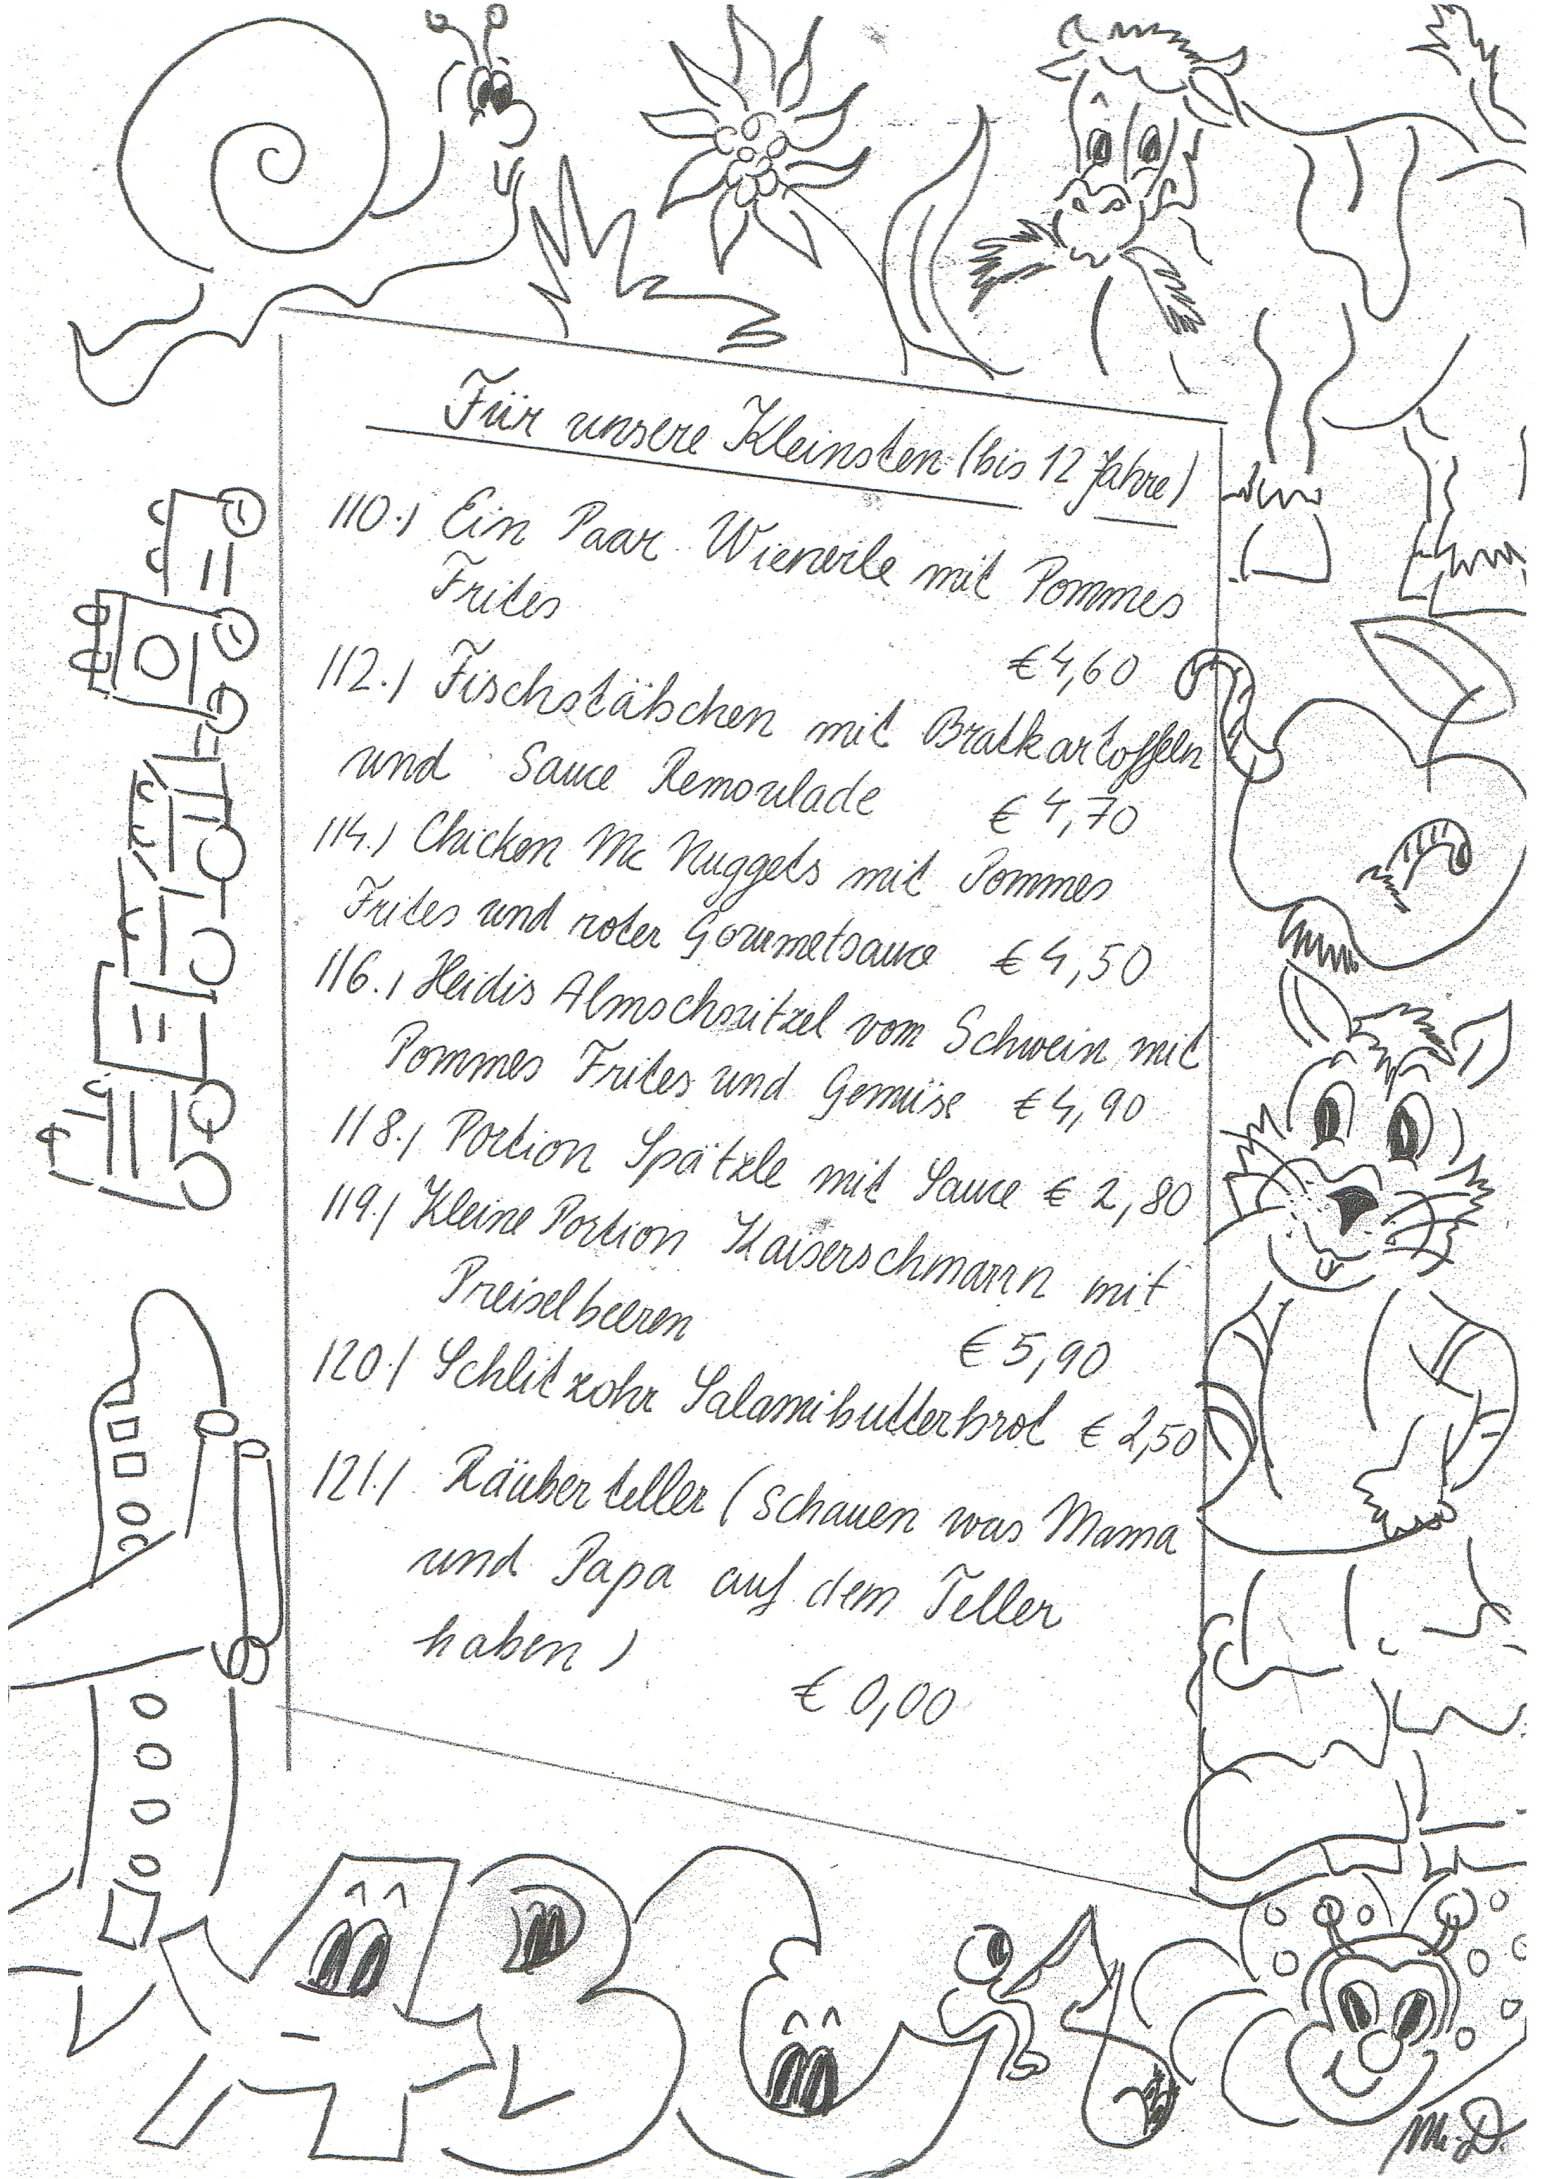 Für unsere Kleinsten (bis 12 Jahre)
110.) Ein Paar Wienerle mit Pommes
Frites
€ 4,60
112.) Fischstäbchen mit Bratkartoffeln
und Sauce Remoulade € 4,70
114.) Chicken Mc Nuggets mit Pommes
Frites und roter Gourmetsauce € 4,50
116.) Heidis Almschnitzel vom Schwein mit
Pommes Frites und Gemüse € 4,90
118.) Portion Spätzle mit Sauce € 2,80
119.) Kleine Portion Kaiserschmarrn mit
Preiselbeeren € 5,90
120.) Schlitzohr Salamibutterbrot € 2,50
121.) Räuberteller (schauen was Mama
und Papa auf dem Teller
haben)
€ 0,00
ABC
M.D.